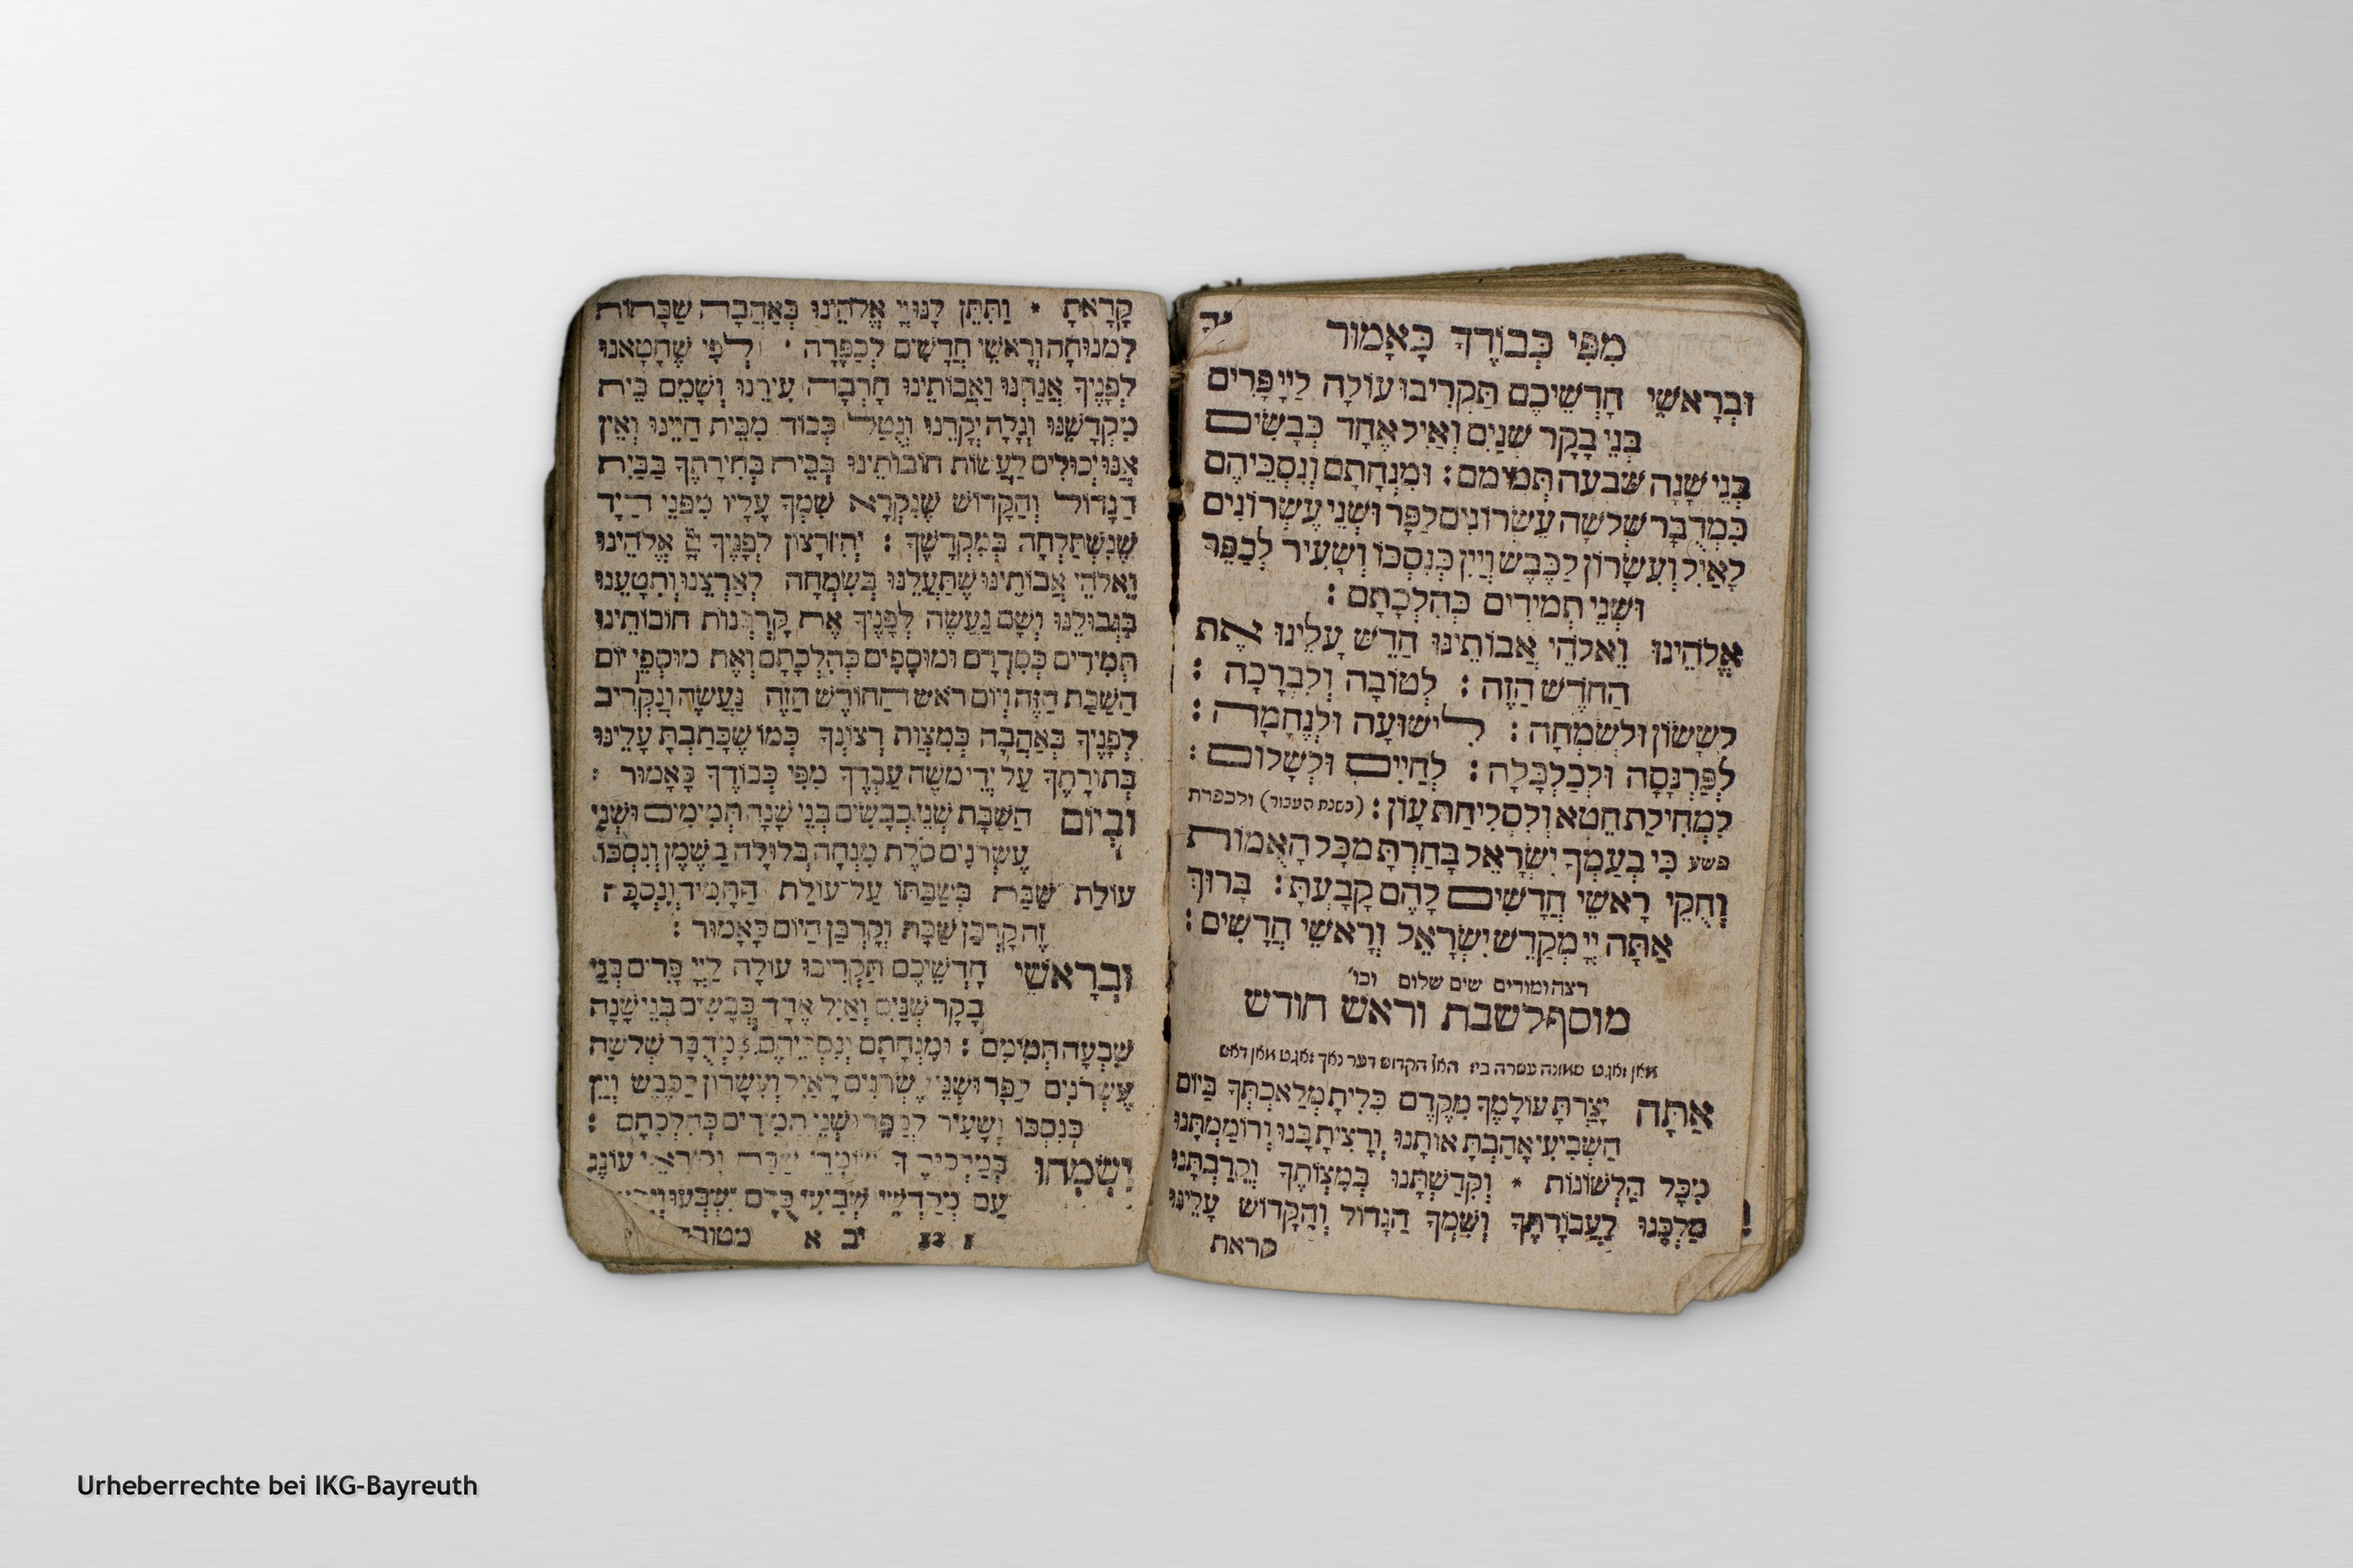 יב
מִפִּי כְּבוֹדֶךָ כָּאָמוּר
וּבְרָאשֵׁי חָדְשֵׁיכֶם תַּקְרִיבוּ עוֹלָה לַיְיָ פָּרִים
בְּנֵי בָקָר שְׁנַיִם וְאַיִל אֶחָד כְּבָשִׂים
בְּנֵי שָׁנָה שִׁבְעָה תְּמִימִם : וּמִנְחָתָם וְנִסְכֵּיהֶם
כִּמְדֻבָּר שְׁלשָׁה עֶשְׂרוֹנִים לַפָּר וּשְׁנֵי עֶשְׂרוֹנִים
לָאַיִל וְעִשָּׂרוֹן לַכֶּבֶשׂ וְיַיִן כְּנִסְכּוֹ וְשָׂעִיר לְכַפֵּר
וּשְׁנֵי תְמִידִים כְּהִלְכָתָם :
אֱלֹהֵינוּ וֵאלֹהֵי אֲבוֹתֵינוּ חַדֵּשׁ עָלֵינוּ אֶת
הַחֹדֶשׁ הַזֶּה : לְטוֹבָה וְלִבְרָכָה :
לְשָׂשׂוֹן וּלְשִׂמְחָה : לִישׁוּעָה וּלְנֶחָמָה :
לְפַרְנָסָה וּלְכַלְכָּלָה : לְחַיִּים וּלְשָׁלוֹם :
לִמְחִילַת חֵטְא וְלִסְלִיחַת עָוֹן : (בשנת העבור) ולכפרת
פשע כִּי בְעַמְּךָ יִשְׂרָאֵל בָּחַרְתָּ מִכָּל הָאֻמּוֹת
וְחֻקֵּי רָאשֵׁי חֳדָשִׁים לָהֶם קָבָעְתָּ : בָּרוּךְ
אַתָּה יְיָ מְקַדֵּשׁ יִשְׂרָאֵל וְרָאשֵׁי חֳדָשִׁים :
רצה ומודים שים שלום וכו'
מוסף לשבת וראש חודש
מאן זאגט שמונה עשרה ביז האל הקדוש דער נאך זאגט מאן דאש
אַתָּה יָצַרְתָּ עוֹלָמְךָ מִקֶּדֶם כִּלִּיתָ מְלַאכְתְּךָ בַּיּוֹם
הַשְּׁבִיעִי אָהַבְתָּ אוֹתָנוּ וְרָצִיתָ בָּנוּ וְרוֹמַמְתָּנוּ
מִכָּל הַלְּשׁוֹנוֹת * וְקִדַּשְׁתָּנוּ בְּמִצְוֹתֶיךָ וְקֵרַבְתָּנוּ
מַלְכֵּנוּ לַעֲבוֹדָתֶךָ וְשִׁמְךָ הַגָּדוֹל וְהַקָּדוֹשׁ עָלֵינוּ
קראת
קָרָאתָ * וַתִּתֶּן לָנוּ יְיָ אֱלֹהֵינוּ בְּאַהֲבָה שַׁבָּתוֹת
לִמְנוּחָה וְרָאשֵׁי חֳדָשִׁים לְכַפָּרָה * לְפִי שֶׁחָטָאנוּ
לְפָנֶיךָ אֲנַחְנוּ וַאֲבוֹתֵינוּ חָרְבָה עִירֵנוּ וְשָׁמֵם בֵּית
מִקְדָּשֵׁנוּ וְגָלָה יְקָרֵנוּ וְנֻטַּל כָּבוֹד מִבֵּית חַיֵּינוּ וְאֵין
אָנוּ יְכוֹלִים לַעֲשׂוֹת חוֹבוֹתֵינוּ בְּבֵית בְּחִירָתֶךָ בַּבַּיִת
הַגָּדוֹל וְהַקָּדוֹשׁ שֶׁנִּקְרָא שִׁמְךָ עָלָיו מִפְּנֵי הַיָּד
שֶׁנִּשְׁתַּלְּחָה בְּמִקְדָּשֶׁךָ : יְהִי רָצוֹן לְפָנֶיךָ יְיָ אֱלֹהֵינוּ
וֵאלֹהֵי אֲבוֹתֵינוּ שֶׁתַּעֲלֵנוּ בְּשִׂמְחָה לְאַרְצֵנוּ וְתִטָּעֵנוּ
בִּגְבוּלֵנוּ וְשָׁם נַעֲשֶׂה לְפָנֶיךָ אֶת קָרְבְּנוֹת חוֹבוֹתֵינוּ
תְּמִידִים כְּסִדְרָם וּמוּסָפִים כְּהִלְכָתָם וְאֶת מוּסְפֵי יוֹם
הַשַּׁבָּת הַזֶּה וְיוֹם רֹאשׁ הַחוֹדֶשׁ הַזֶּה נַעֲשֶׂה וְנַקְרִיב
לְפָנֶיךָ בְּאַהֲבָה כְּמִצְוַת רְצוֹנֶךָ כְּמוֹ שֶׁכָּתַבְתָּ עָלֵינוּ
בְּתוֹרָתֶךָ עַל יְדֵי מֹשֶׁה עַבְדֶּךָ מִפִּי כְּבוֹדֶךָ כָּאָמוּר :
וּבְיוֹם הַשַּׁבָּת שְׁנֵי כְבָשִׂים בְּנֵי שָׁנָה תְּמִימִים וּשְׁנֵי
עֶשְׂרֹנִים סֹלֶת מִנְחָה בְּלוּלָה בַשֶּׁמֶן וְנִסְכּוֹ
עוֹלַת שַׁבַּת בְּשַׁבַּתּוֹ עַל עוֹלַת הַתָּמִיד וְנִסְכָּהּ
זֶה קָרְבַּן שַׁבָּת וְקָרְבַּן הַיּוֹם כָּאָמוּר :
וּבְרָאשֵׁי חָדְשֵׁיכֶם תַּקְרִיבוּ עוֹלָה לַיְיָ פָּרִים בְּנֵי
בָקָר שְׁנַיִם וְאַיִל אֶחָד כְּבָשִׂים בְּנֵי שָׁנָה
שִׁבְעָה תְּמִימִם : וּמִנְחָתָם וְנִסְכֵּיהֶם כִּמְדֻבָּר שְׁלשָׁה
עֶשְׂרֹנִים לַפָּר וּשְׁנֵי עֶשְׂרֹנִים לָאַיִל וְעִשָּׂרוֹן לַכֶּבֶשׂ וְיַיִן
כְּנִסְכּוֹ וְשָׂעִיר לְכַפֵּר וּשְׁנֵי תְמִידִים כְּהִלְכָתָם :
יִשְׂמְחוּ בְמַלְכוּתְךָ שׁוֹמְרֵי שַׁבָּת וְקוֹרְאֵי עוֹנֶג
עַם מְקַדְּשֵׁי שְׁבִיעִי כֻּלָּם יִשְׂבְּעוּ
יב א מטוב
Urheberrechte bei IKG-Bayreuth